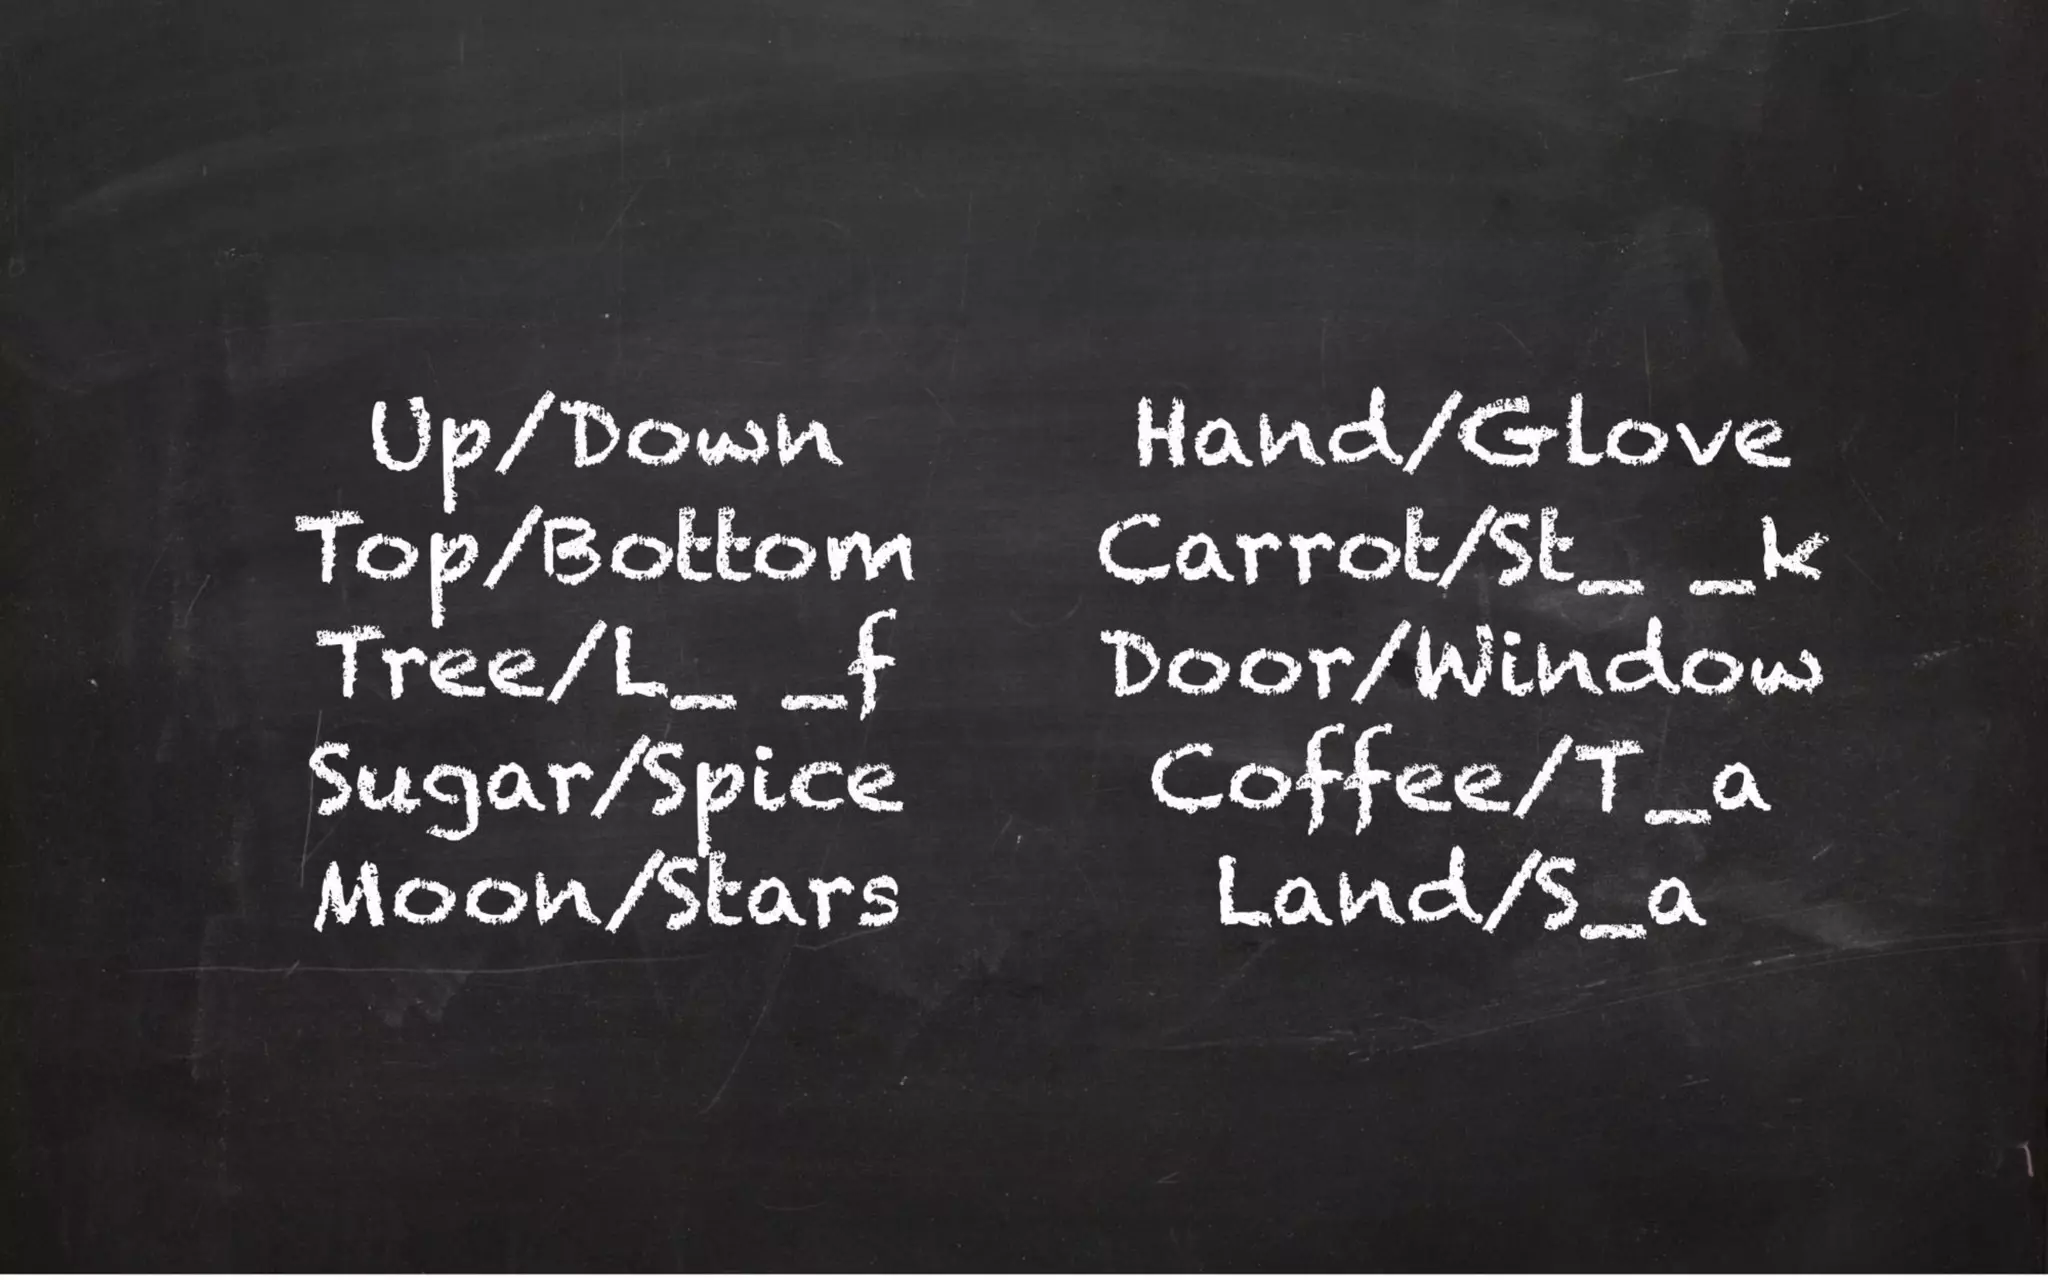 Up/Down
Top/Bottom
Tree/L_ _f
Sugar/Spice
Moon/Stars
Hand/Glove
Carrot/St_ _k
Door/Window
Coffee/T_a
Land/S_a